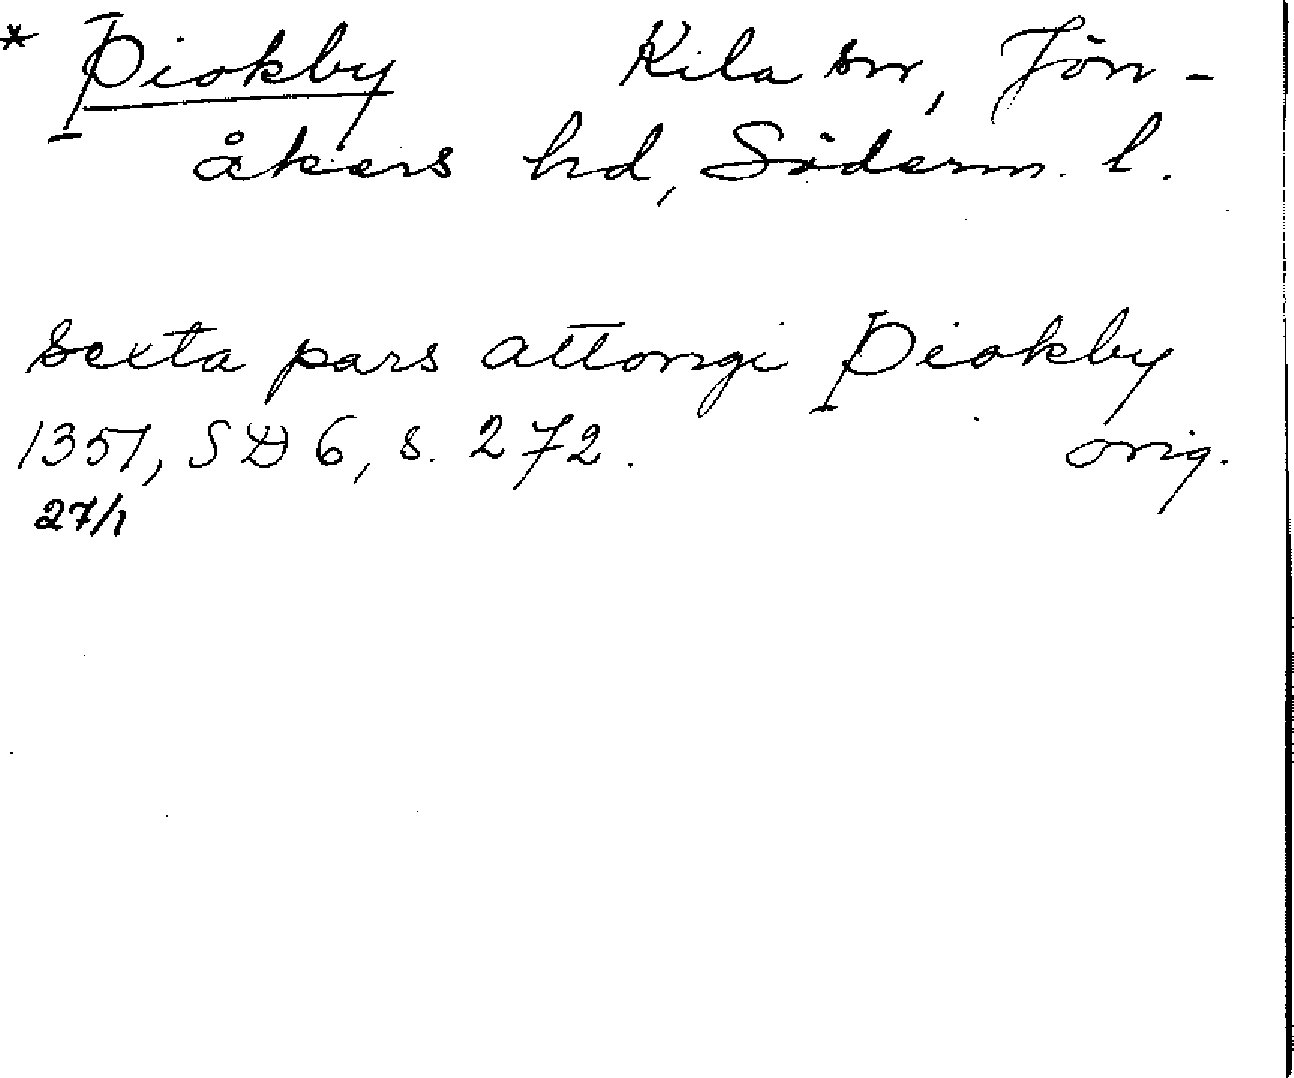 * Þiokby Kila sn, Jön-
åkers hd, Söderm. l.
sexta pars attongi Þiokby
1351, SD 6, s. 272. orig.
27/1